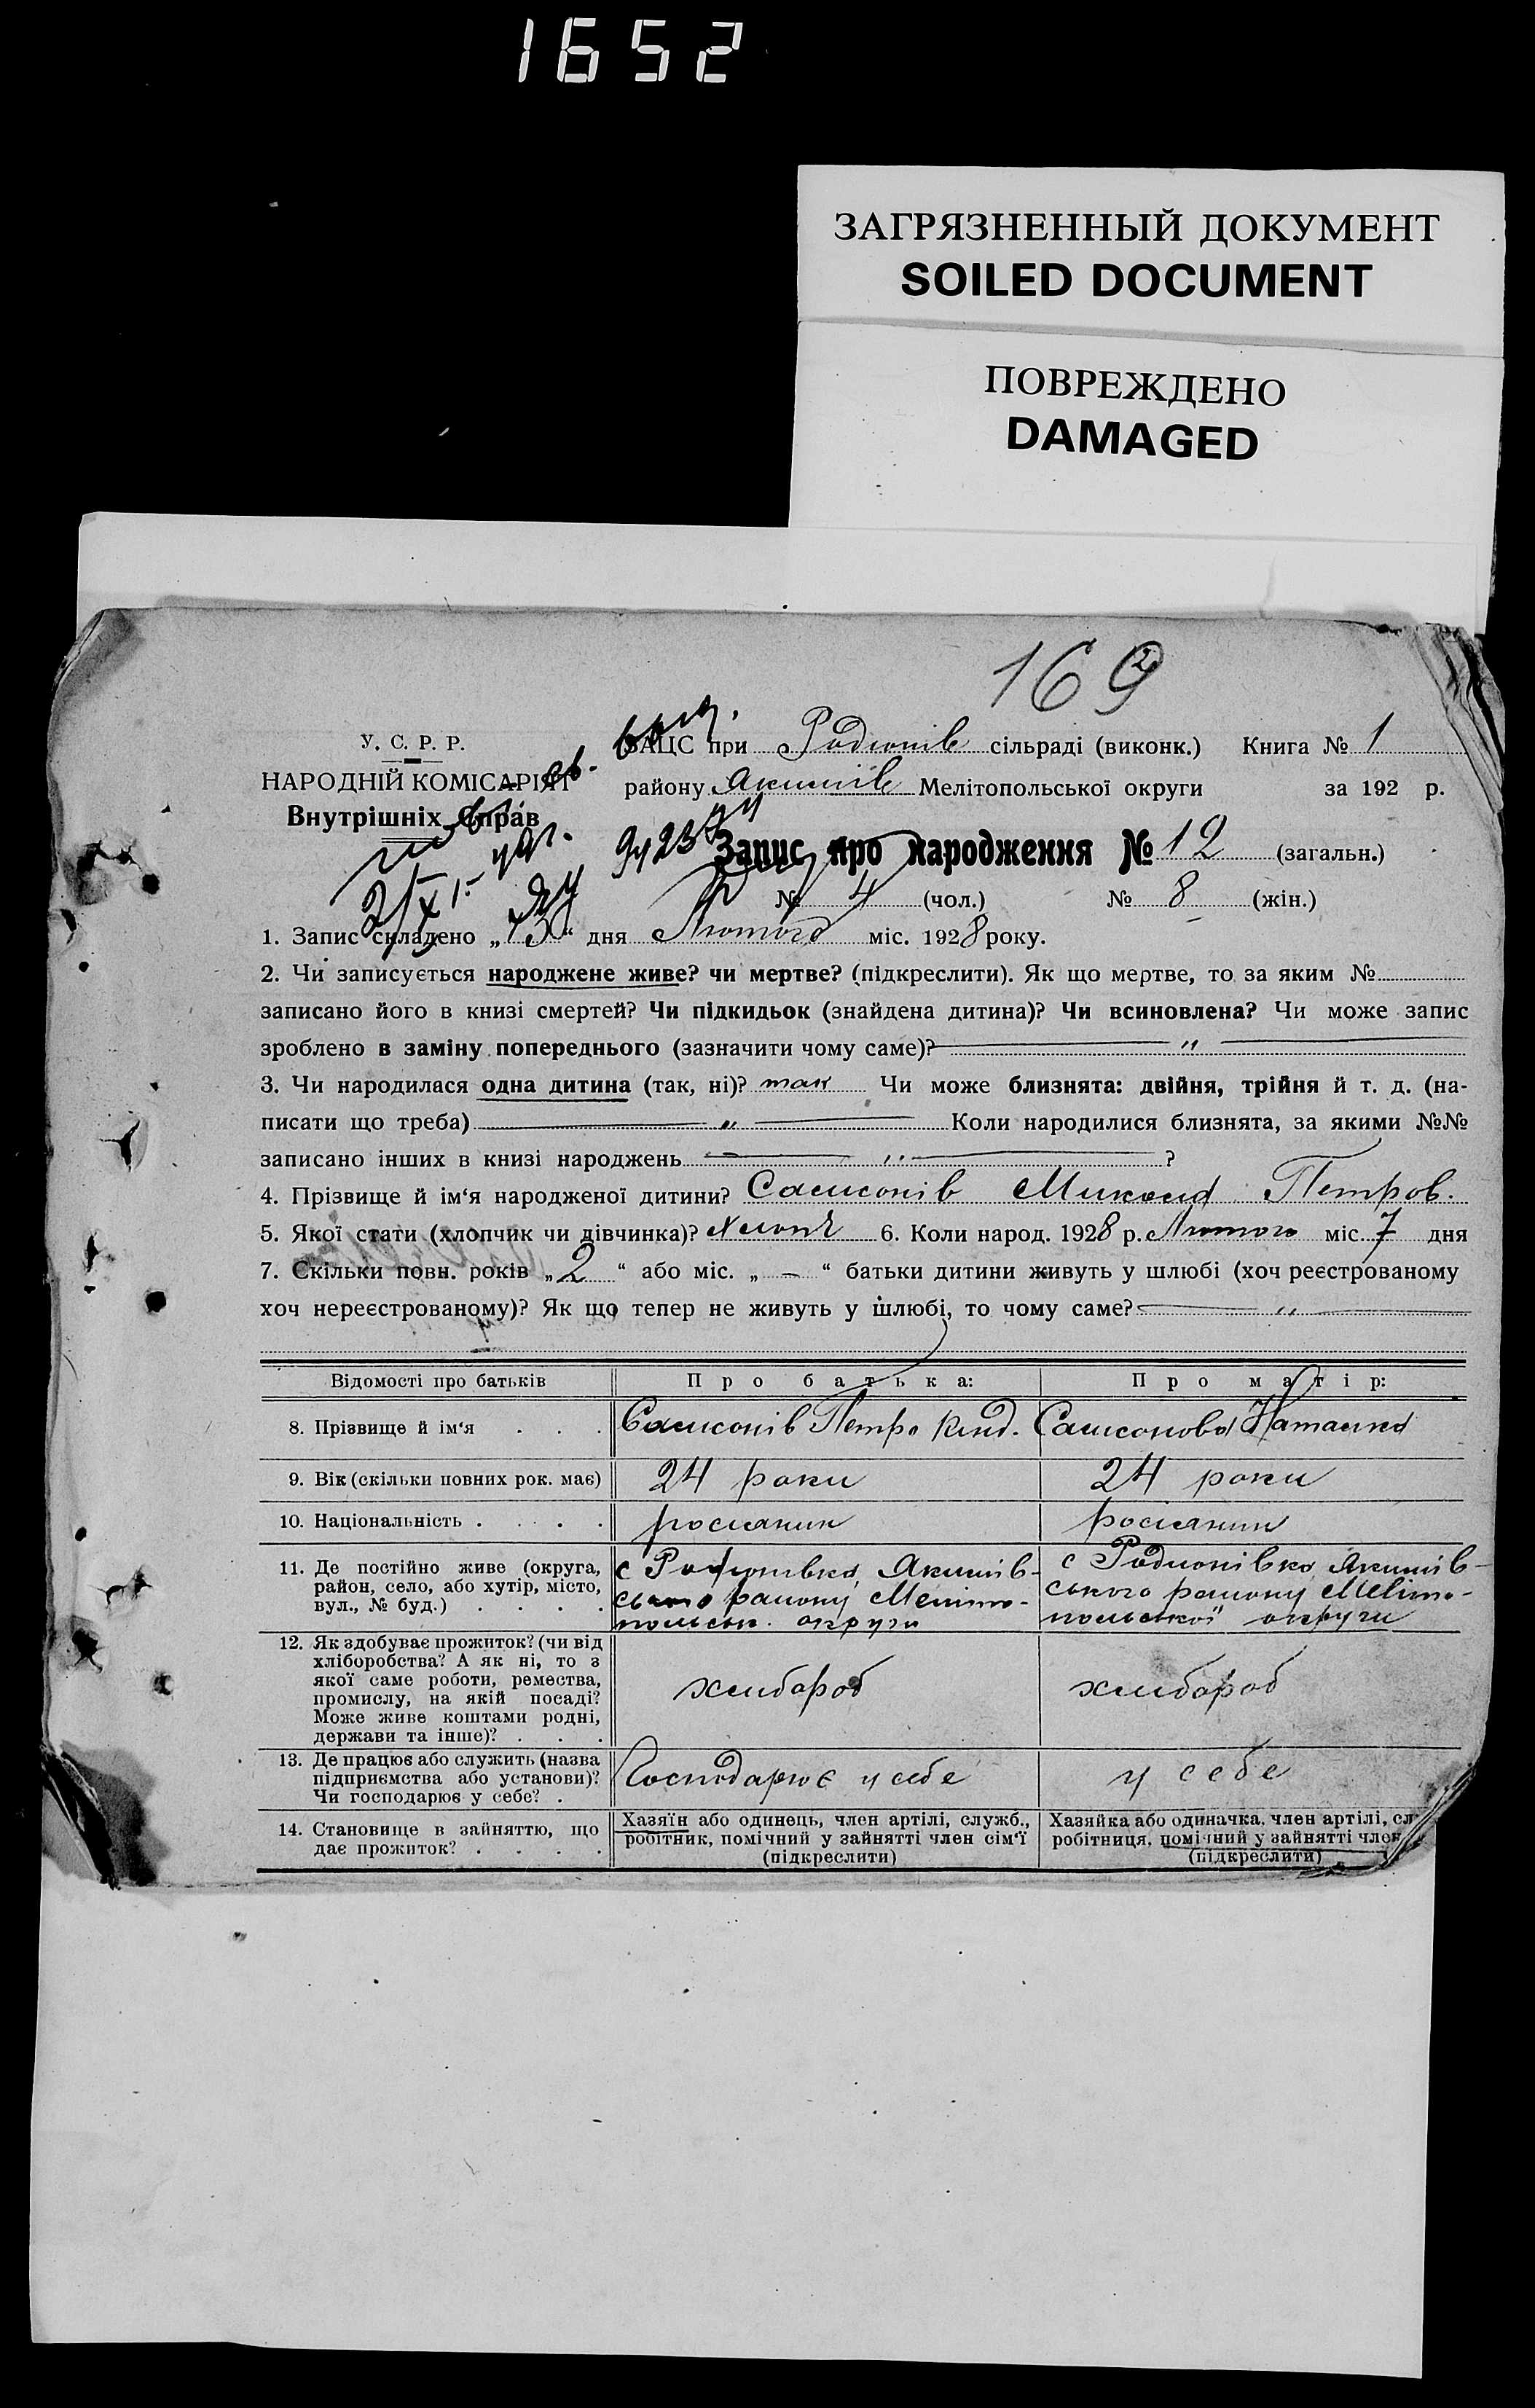 1652
ЗАГРЯЗНЕННЫЙ ДОКУМЕНТ
SOILED DOCUMENT
ПОВРЕЖДЕНО
DAMAGED
169
У. С. Р. Р.
НАРОДНІЙ КОМІСАРІЯТ
Внутрішніх Справ
ЗАЦС при Родионів сільраді (виконк.) Книга № 1
району Акимів Мелітопольської округи за 192 р.
Запис про народження № 12 (загальн.)
№ 4 (чол.) № 8 (жін.)
1. Запис складено „13“ дня Лютого міс. 1928 року.
2. Чи записується народжене живе? чи мертве? (підкреслити). Як що мертве, то за яким №
записано його в книзі смертей? Чи підкидьок (знайдена дитина)? Чи всиновлена? Чи може запис
зроблено в заміну попереднього (зазначити чому саме)? — „ —
3. Чи народилася одна дитина (так, ні)? так Чи може близнята: двійня, трійня й т. д. (на-
писати що треба) — „ — Коли народилися близнята, за якими №№
записано інших в книзі народжень — „ — ?
4. Прізвище й ім‘я народженої дитини? Самсонів Микола Петров.
5. Якої стати (хлопчик чи дівчинка)? Хлопч 6. Коли народ. 1928 р. Лютого міс. 7 дня
7. Скільки повн. років „2“ або міс. „—“ батьки дитини живуть у шлюбі (хоч реєстрованому
хоч нереєстрованому)? Як що тепер не живуть у шлюбі, то чому саме? — „ —
Відомості про батьків Про батька: Про матір:
8. Прізвище й ім‘я . . . Самсонів Петро Самсонова Наталка
9. Вік (скільки повних рок. має) 24 роки 24 роки
10. Національність . . . . росиянин росиянин
11. Де постійно живе (округа,
район, село, або хутір, місто,
вул., № буд.) . . . .
с Родионівка Акимів-
ського району Меліто-
польськ. округи
с Родионівка Акимів-
ського району Меліто-
польської округи
12. Як здобуває прожиток? (чи від
хліборобства? А як ні, то з
якої саме роботи, ремества,
промислу, на якій посаді?
Може живе коштами родні,
держави та інше)? . . .
хлибороб хлибороб
13. Де працює або служить (назва
підприємства або установи)?
Чи господарює у себе? .
Господарює у себе у себе
14. Становище в зайняттю, що
дає прожиток? . . . .
Хазяїн або одинець, член артілі, служб.,
робітник, помічний у зайнятті член сім‘ї
(підкреслити)
Хазяйка або одиначка, член артілі, сл
робітниця, помічний у зайнятті член
(підкреслити)